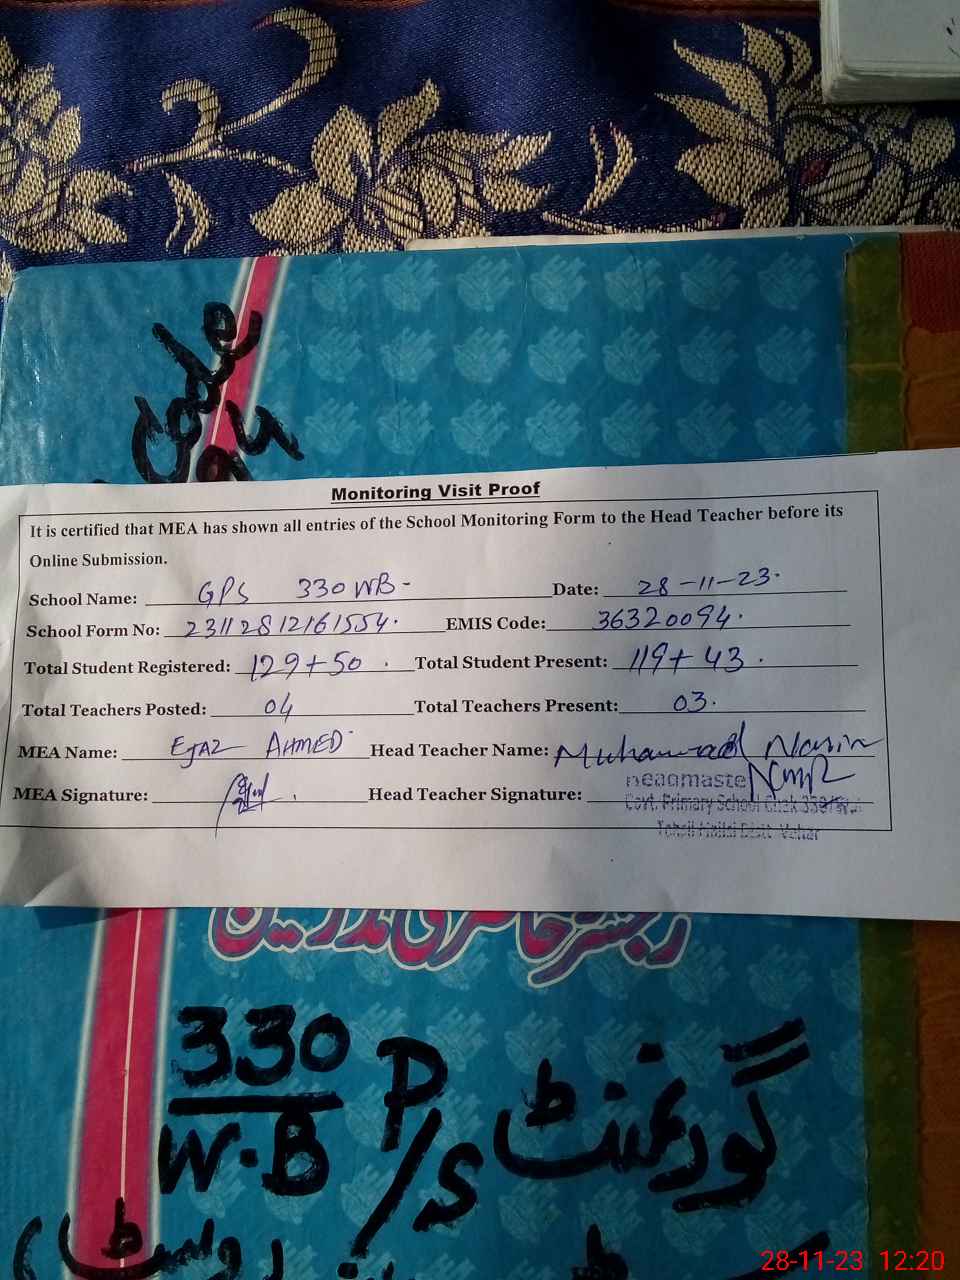 Code
Monitoring Visit Proof
It is certified that MEA has shown all entries of the School Monitoring Form to the Head Teacher before its
Online Submission.
School Name: GPS 330 WB - Date: 28-11-23.
School Form No: 231128 12161554. EMIS Code: 36320094.
Total Student Registered: 129+50 . Total Student Present: 119+ 43 .
Total Teachers Posted: 04 Total Teachers Present: 03.
MEA Name: EJAZ AHMED Head Teacher Name: Muhammad
MEA Signature: Head Teacher Signature:
Govt. Primary School Chak 330/W.
رجسٹر حاضری مدرسین
گورنمنٹ P/S 330 W.B
28-11-23 12:20